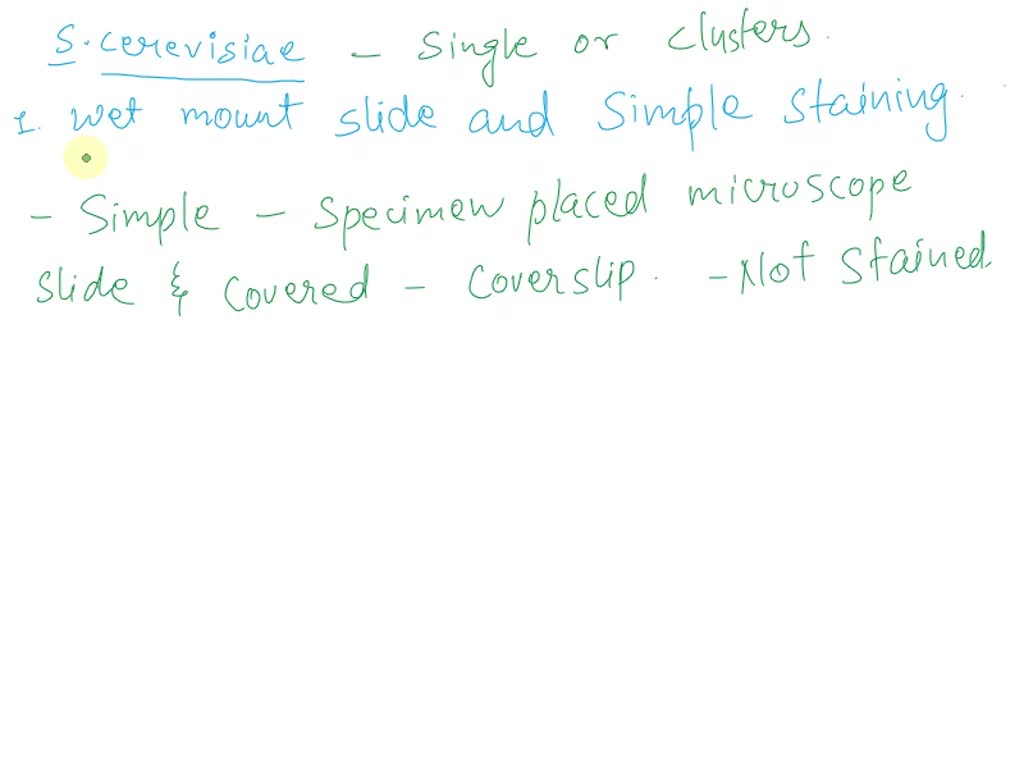 S. cerevisiae - Single or clusters.
1. wet mount slide and Simple staining.
- Simple - Specimen placed microscope
slide & covered - Coverslip. - Not stained.